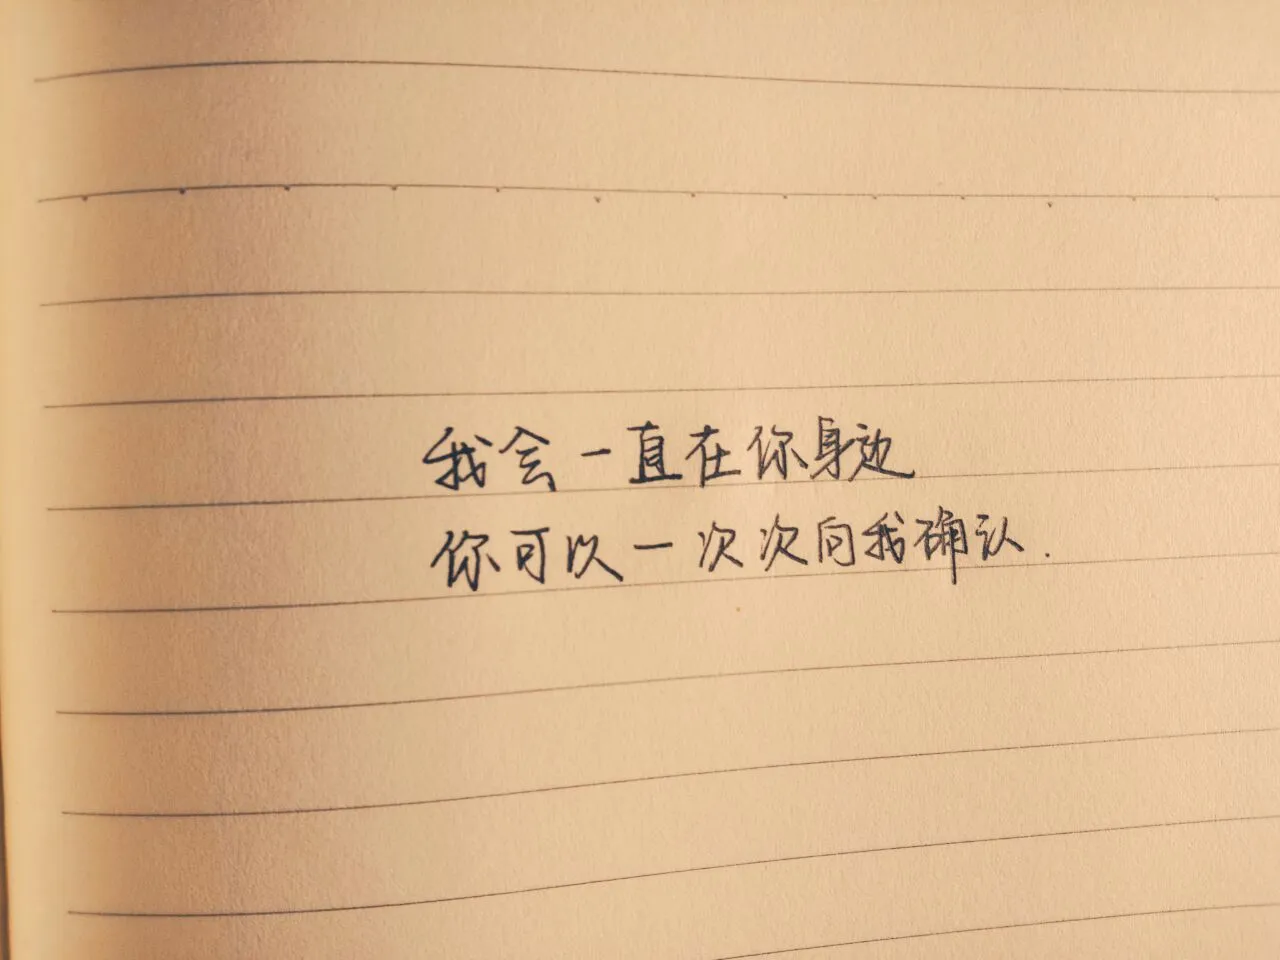 我会一直在你身边
你可以一次次向我确认.